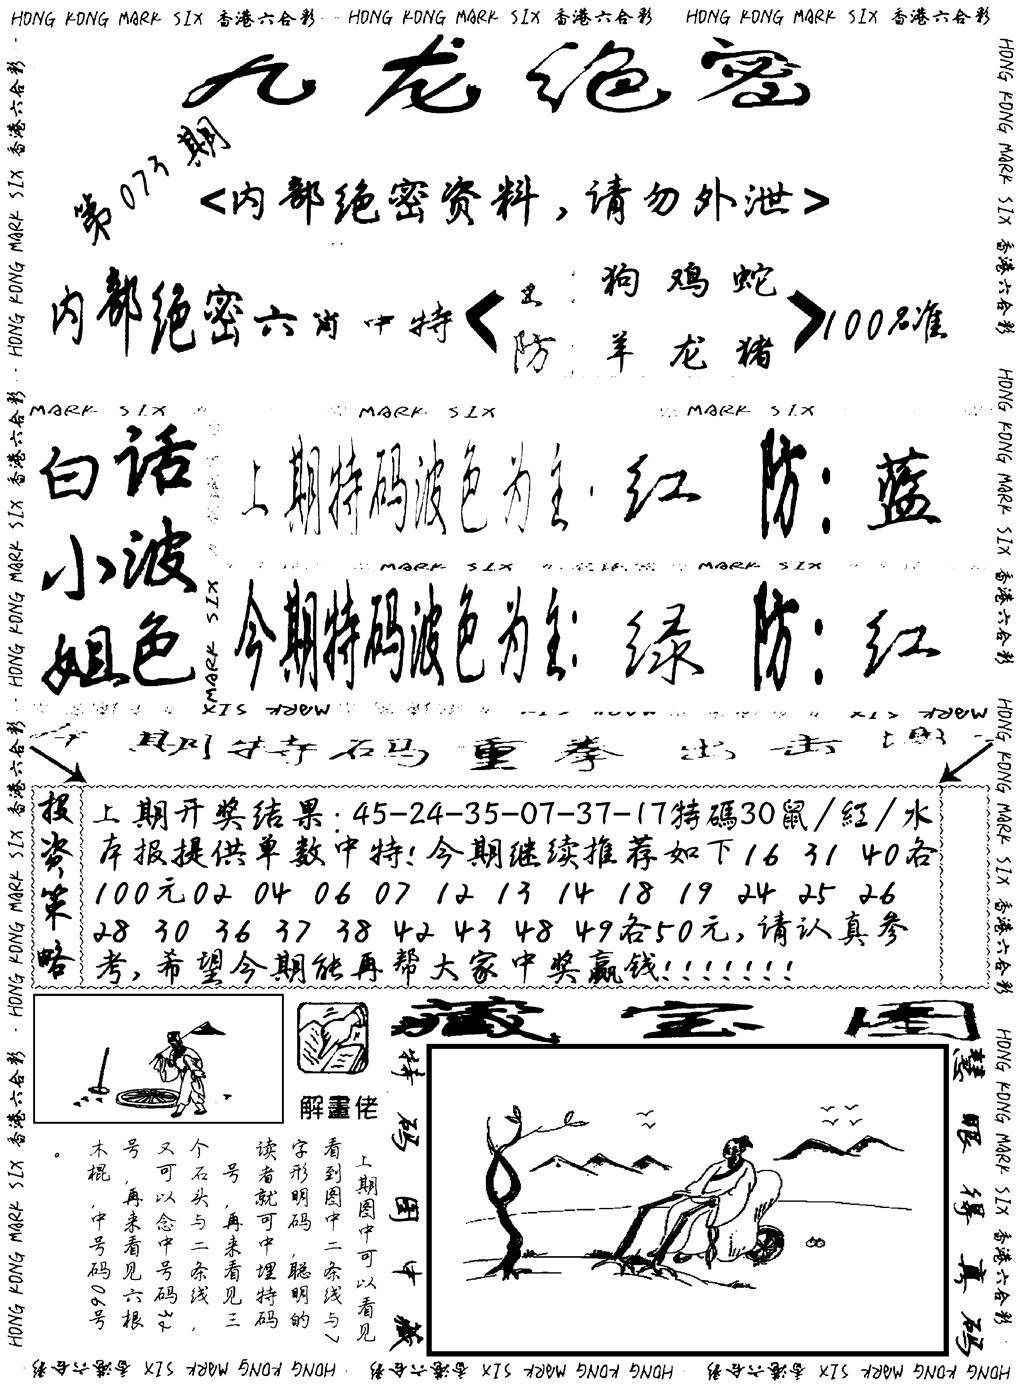 HONG KONG MARK SIX 香港六合彩 HONG KONG MARK SIX 香港六合彩 HONG KONG MARK SIX 香港六合彩
九龙绝密
第073期
<内部绝密资料,请勿外泄>
内部绝密六肖中特
主:狗鸡蛇
防:羊龙猪
100%准
MARK SIX MARK SIX MARK SIX
白小姐
话波色
上期特码波色为主:红 防:蓝
MARK SIX MARK SIX
今期特码波色为主:绿 防:红
MARK SIX
今期特码重拳出击
投资策略
上期开奖结果:45-24-35-07-37-17特碼30鼠/紅/水
本报提供单数中特!今期继续推荐如下16 31 40各
100元02 04 06 07 12 13 14 18 19 24 25 26
28 30 36 37 38 42 43 48 49各50元,请认真参
考,希望今期能再帮大家中奖赢钱!!!!!!!
解畫佬
上期图中可以看见
看到图中二条线与7
字形明码,聪明的
读者就可中埋特码
号,再来看见三
个石头与二条线,
又可以念中号码
号,再来看见六根
木棍,中号码
。
藏宝图
特码图中藏
慧眼得真码
HONG KONG MARK SIX 香港六合彩 HONG KONG MARK SIX 香港六合彩 HONG KONG MARK SIX 香港六合彩